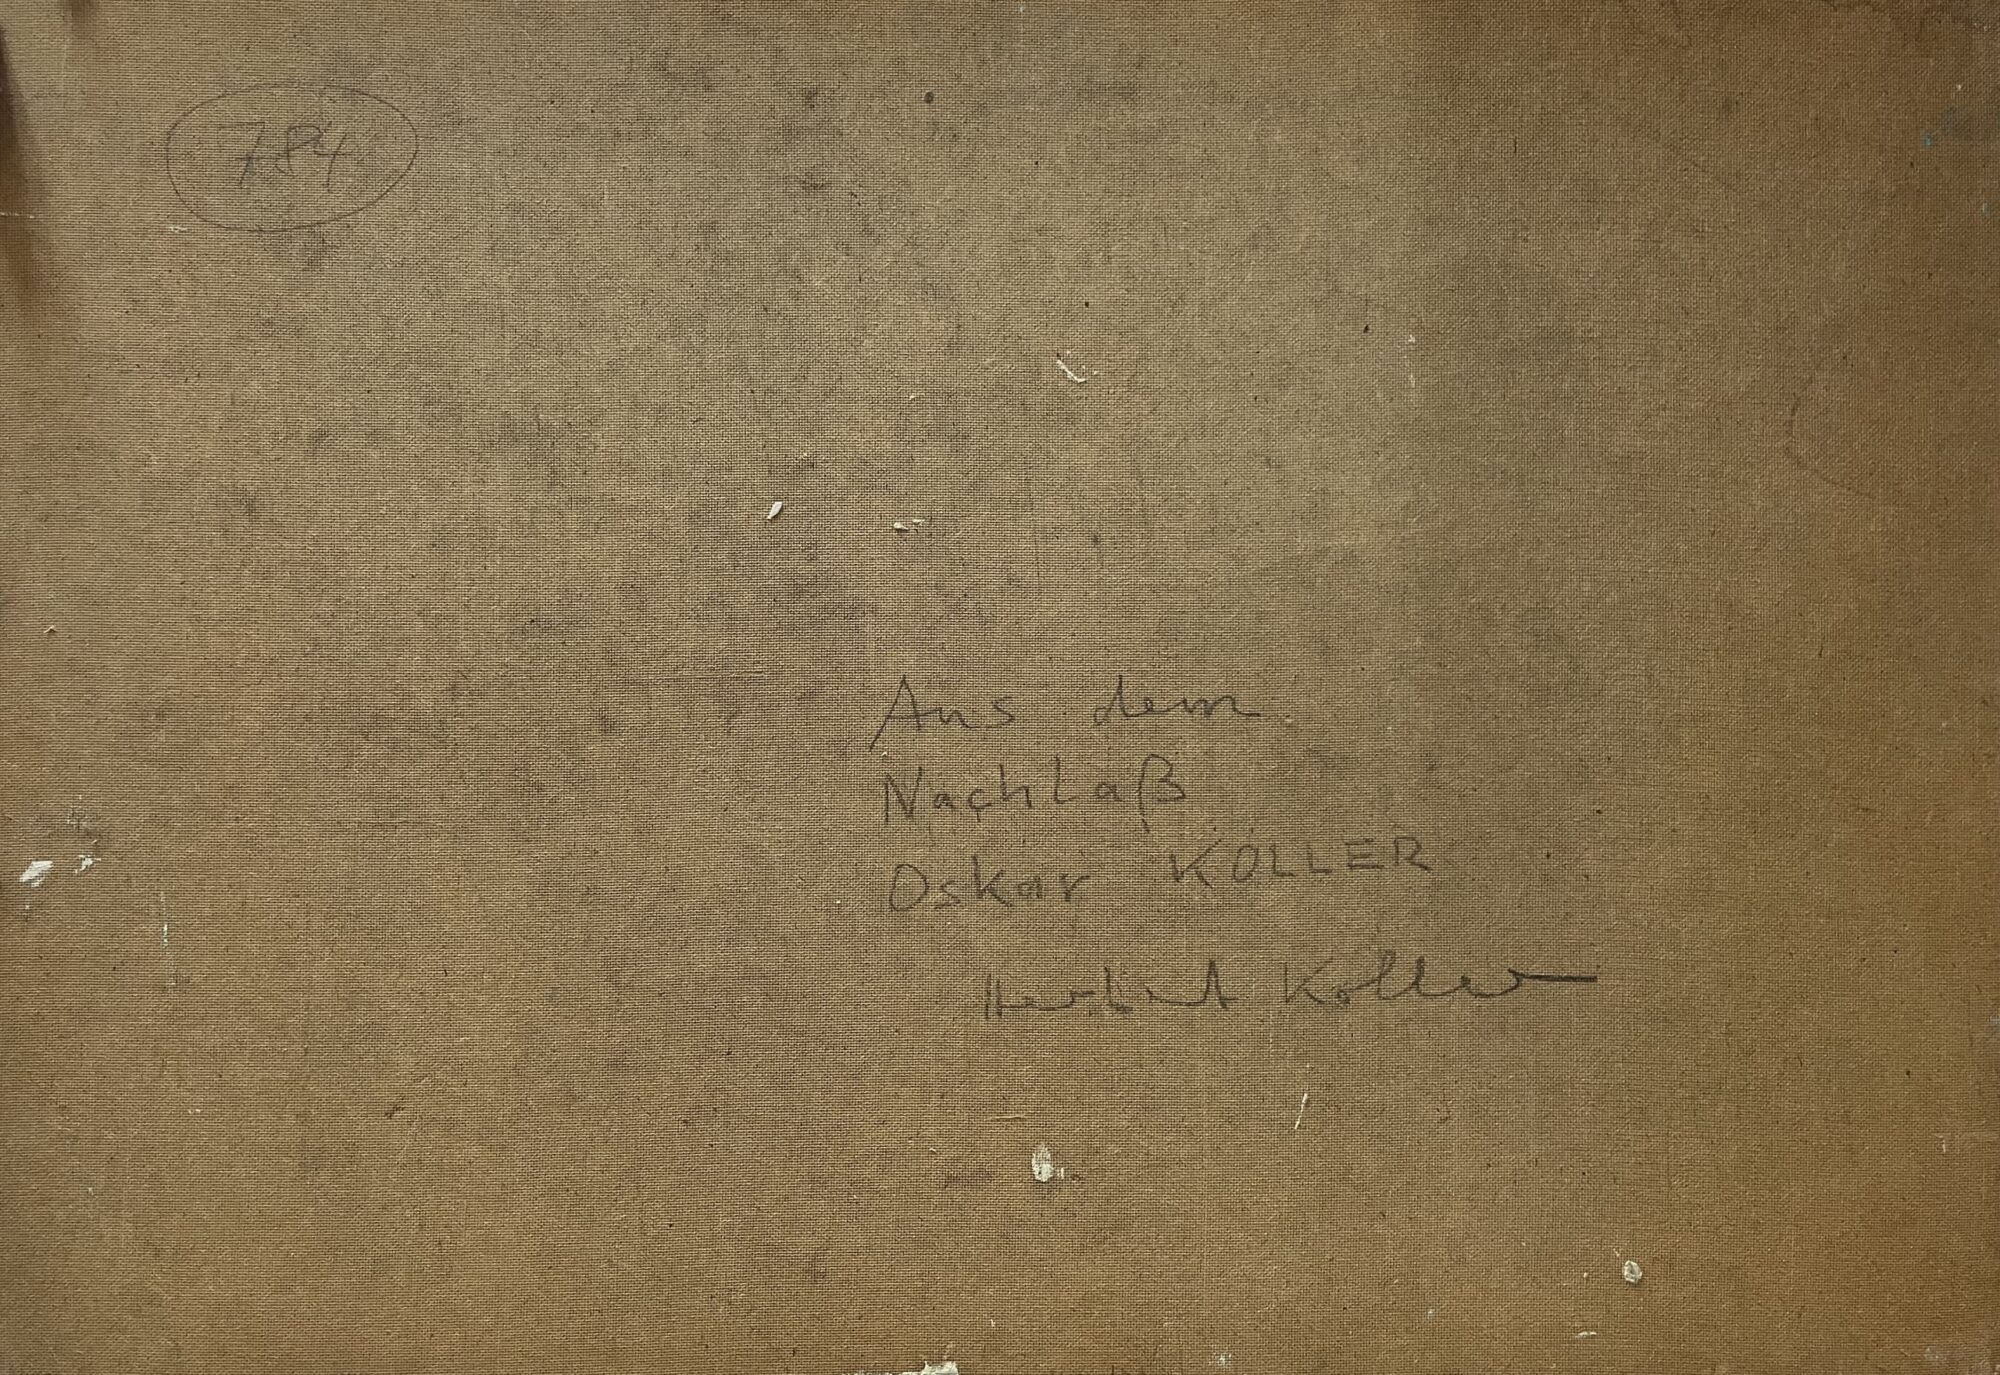 784
Aus dem
Nachlaß
Oskar KOLLER
Herbert Koller